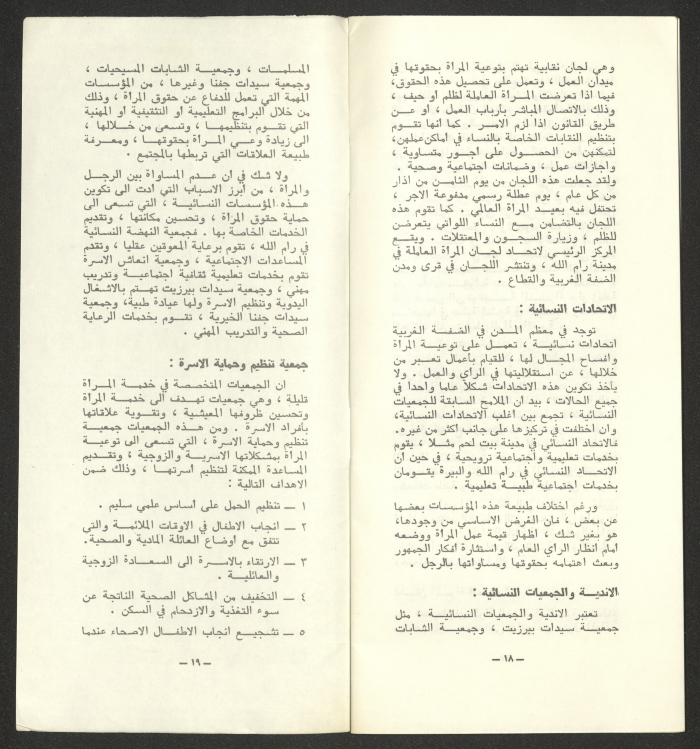 وهي لجان نقابية تهتم بتوعية المراة بحقوقها في
ميدان العمل ، وتعمل على تحصيل هذه الحقوق،
فيما اذا تعرضت المـراة العاملة لظلم او حيف ،
وذلك بالاتصال المباشر بأرباب العمل ، او عـن
طريق القانون اذا لزم الامـر . كما أنها تقـوم
بتنظيم النقابات الخاصة بالنساء في اماكن عملهن،
لتمكنهن من الحصـول على اجـور متساوية ،
واجازات عمل ، وضمانات اجتماعية وصحية .
ولقد جعلت هذه اللجان من يوم الثامـن من اذار
من كل عام ، يوم عطلة رسمي مدفوعة الاجر ،
تحتفل فيه بعيـد المراة العالمي . كما تقوم هذه
اللجان بالتضامن مـع النساء اللواتي يتعرضـن
للظلم ، وزيارة السجـون والمعتقلات . ويقـع
المركز الرئيسي لاتحـاد لجـان المراة العاملة في
مدينة رام الله ، وتنتشر اللجـان في قرى ومدن
الضفة الغربية والقطاع .
الاتحادات النسائية :
توجد في معظم المـدن في الضفـة الغربية
اتحادات نسائيـة ، تعمـل على توعيـة المراة
وافساح المجال لها ، للقيام بأعمال تعبـر من
خلالها ، عن استقلاليتها في الراي والعمل . ولا
يأخذ تكوين هذه الاتحادات شكلا عاما واحدا في
جميع الحالات ، بيد ان الملامح السابقة للجمعيات
النسائية ، تجمع بين اغلب الاتحادات النسائية،
وان اختلفت في تركيزها على جانب اكثر من غيره.
فالاتحاد النسائي في مدينة بيت لحم مثـلا ، يقوم
بخدمات تعليمية واجتماعية ترويحية ، في حين ان
الاتحـاد النسائي في رام الله والبيرة يقـومان
بخدمات اجتماعية طبيـة تعليمية .
ورغم اختلاف طبيعة هذه المؤسسات بعضها
عن بعض ، فان الغرض الاساسي من وجودها،
هو بغير شـك ، اظهار قيمة عمل المراة ووضعه
امام انظار الراي العام ، واستثارة افكار الجمهور
وبعث اهتمامه بحقوقها ومساواتها بالرجل .
الانديـة والجمعيات النسائية :
تعتبر الاندية والجمعيات النسائيـة ، مثل
جمعيـة سيدات بيرزيت ، وجمعيـة الشابات
ـ ١٨ ـ
المسلمـات ، وجمعيـة الشابات المسيحيات ،
وجمعية سيدات جفنا وغيرها ، من المؤسسات
المهمة التي تعمل للدفاع عن حقوق المراة ، وذلك
من خلال البرامج التعليمية او التثقيفية او المهنية
التي تقـوم بتنظيمهـا ، وتسعى من خـلالها ،
الى زيادة وعـي المـراة بحقوقهـا ، ومعـرفة
طبيعة العلاقات التي تربطها بالمجتمع .
ولا شـك في ان عـدم المساواة بين الرجـل
والمراة ، من ابرز الاسباب التي ادت الى تكوين
هـذه المؤسسات النسائيـة ، التي تسعى الى
حماية حقوق المراة ، وتحسين مكانتها ، وتقديم
الخدمات الخاصة بها . فجمعية النهضة النسائية
في رام الله ، تقوم برعاية المعوقين عقليا ، وتقدم
المساعدات الاجتماعية ، وجمعية انعاش الاسرة
تقوم بخدمات تعليمية ثقافية اجتماعيـة وتدريب
مهني ، وجمعية سيدات بيرزيت تهـتم بالاشغال
اليدوية وتنظيم الاسرة ولها عيادة طبية، وجمعية
سيدات جفنا الخيرية ، تقـوم بخدمات الرعاية
الصحية والتدريب المهني .
جمعية تنظيم وحماية الاسرة :
ان الجمعيات المتخصصة في خدمـة المـراة
قليلة ، وهي جمعيات تهـدف الى خدمـة المراة
وتحسين ظروفها المعيشيـة ، وتقـوية علاقاتها
بأفراد الاسرة . ومن هـذه الجمعيات جمعيـة
تنظيم وحماية الاسرة ، التي تسعى الى توعيـة
المراة بمشكلاتها الاسريـة والزوجية ، وتقـديم
المساعدة الممكنة لتنظيم اسرتهـا ، وذلك ضمن
الاهداف التالية :
١ ـ تنظيم الحمل على اساس علمي سليم .
٢ ـ انجاب الاطفال في الاوقات الملائمـة والتي
تتفق مع اوضاع العائلة المادية والصحية.
٣ ـ الارتقاء بالاسـرة الى السعـادة الزوجية
والعائليـة .
٤ ـ التخفيف من المشاكل الصحية الناتجة عن
سوء التغذية والازدحام في السكن .
٥ ـ تشجيـع انجاب الاطفـال الاصحاء عندما
ـ ١٩ ـ